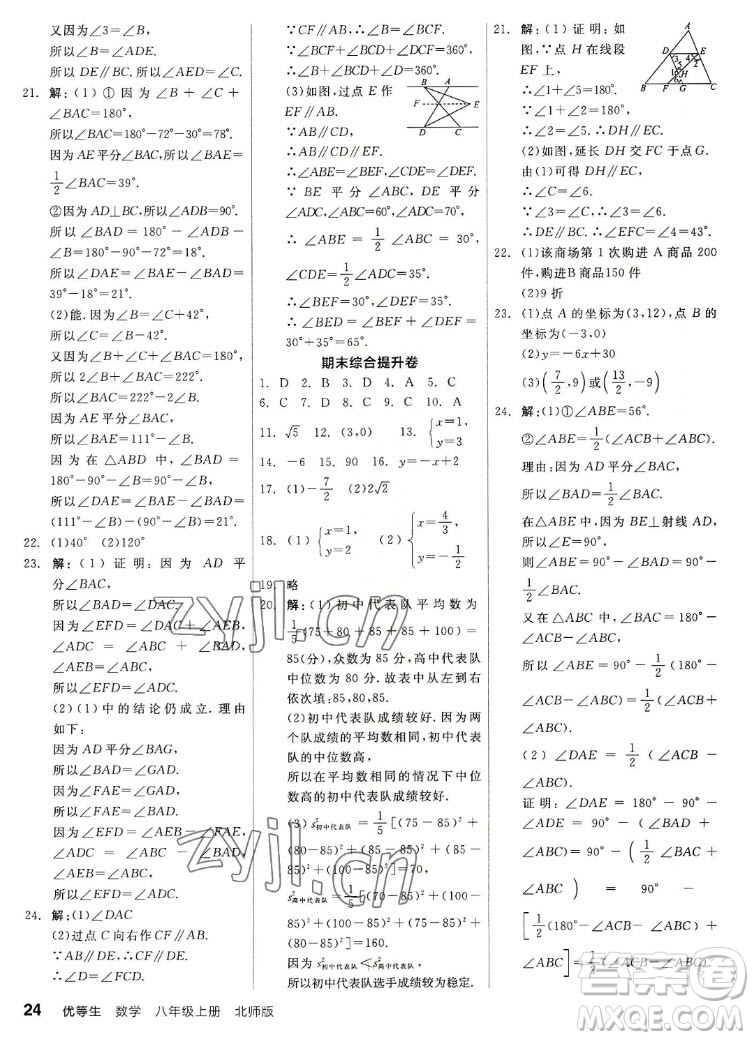 又因为∠3=∠B,
所以∠B=∠ADE.
所以DE∥BC. 所以∠AED=∠C.
21. 解:(1)①因为∠B+∠C+
∠BAC=180°,
所以∠BAC=180°-72°-30°=78°.
因为AE平分∠BAC,所以∠BAE=
1/2∠BAC=39°.
②因为AD⊥BC,所以∠ADB=90°.
所以∠BAD=180°-∠ADB-∠B
=180°-90°-72°=18°.
所以∠DAE=∠BAE-∠BAD=
39°-18°=21°.
(2)能. 因为∠B=∠C+42°,
所以∠C=∠B-42°.
又因为∠B+∠C+∠BAC=180°,
所以2∠B+∠BAC=222°.
所以∠BAC=222°-2∠B.
因为AE平分∠BAC,
所以∠BAE=111°-∠B.
因为在△ABD中,∠BAD=180°-90°-∠B=90°-∠B,
所以∠DAE=∠BAE-∠BAD=
(111°-∠B)-(90°-∠B)=21°.
22. (1)40° (2)120°
23. 解:(1)证明:因为AD平
分∠BAC,
所以∠BAD=∠DAC.
因为∠EFD=∠DAC+∠AEB,
∠ADC=∠ABC+∠BAD,
∠AEB=∠ABC,
所以∠EFD=∠ADC.
(2)(1)中的结论仍成立. 理由
如下:
因为AD平分∠BAG,
所以∠BAD=∠GAD.
因为∠FAE=∠GAD,
所以∠FAE=∠BAD.
因为∠EFD=∠AEB-∠FAE,
∠ADC=∠ABC-∠BAD,
∠AEB=∠ABC,
所以∠EFD=∠ADC.
24. 解:(1)∠DAC
(2)过点C向右作CF∥AB.
∵AB∥DE,∴CF∥DE.
∴∠CDE=∠FCD.
∵CF∥AB,
∴∠B+∠BCF=180°.
∴∠BCF+∠BCD+∠DCF=360°,
∴∠B+∠BCD+∠CDE=360°.
(3)如图,过点E作
EF∥AB.
∵AB∥CD,
∴AB∥CD∥EF.
∴∠ABE=∠BEF,∠CDE=∠DEF.
∵BE平分∠ABC,DE平分
∠ADC,
∴∠ABE=1/2∠ABC=30°,
∠CDE=1/2∠ADC=35°.
∴∠BEF=30°,∠DEF=35°.
∴∠BED=∠BEF+∠DEF=
30°+35°=65°.
A
B
E
F
D
C
期末综合提升卷
1. D 2. B 3. D 4. A 5. C
6. C 7. D 8. D 9. D 10. C
11. √5 12. (3,0) 13. {x=1, y=3
14. -6 15. 90 16. y=-x-2
17. (1)-7/2 (2)2√2
18. (1){x=1, y=2 (2){x=4/3, y=-1/2
19. 略
20. 解:(1)初中代表队平均数为
1/5(75+80+85+85+100)=
85(分),众数为85分,高中代表队
中位数为80分. 故表中从上到下、从左到右
依次填:85,80,85.
(2)初中代表队成绩较好. 因为两
个队的平均数都相同,初中代表队
的中位数高,
所以在平均数相同的情况下中位
数高的初中代表队成绩较好.
(3)s²初中代表队=1/5[(75-85)²+
(80-85)²+(85-85)²+(85-
85)²+(100-85)²]=70,
s²高中代表队=1/5[(70-85)²+(100-
85)²+(100-85)²+(75-85)²+
(80-85)²]=160.
因为s²初中代表队<s²高中代表队,
所以初中代表队选手成绩较为稳定.
21. 解:(1)证明:如
图,∵点H在线段
EF上,
∴∠1+∠5=180°.
∵∠1+∠2=180°,
∴∠5=∠2. ∴DH∥EC.
(2)如图,延长DH交FC于点G.
由(1)可得DH∥EC,
∴∠C=∠6.
∵∠3=∠C,∴∠3=∠6.
∴DE∥FC. ∴∠EFC=∠4=30°.
A
D
E
H
B
F
G
C
22. (1)该商场第1次购进A商品200
件,购进B商品150件
(2)9折
23. (1)点A的坐标为(3,12),点B的
坐标为(-3,0)
(2)y=-6x+30
(3)(7/2,9)或(13/2,-9)
24. 解:(1)①∠ABE=56°.
②∠ABE=1/2(∠ABC+∠ACB).
理由:因为AD平分∠BAC,
所以∠BAD=1/2∠BAC.
在△ABE中,BE⊥射线AD,
则∠ABE=90°-∠BAD=90°-
1/2∠BAC.
又因为在△ABC中,∠BAC=180°-∠ACB-∠ABC,
所以∠ABE=90°-1/2(180°-
∠ACB-∠ABC)=1/2(∠ACB+
∠ABC).
(2)∠DAE=1/2(∠ABC-∠ACB).
证明:∠DAE=180°-90°-
∠ADE=90°-(∠ACB+
1/2∠BAC)=90°-
[1/2(180°-∠ACB-∠ABC)
+∠ACB]=1/2(∠ABC-∠ACB).
24 优等生 数学 八年级上册 北师版
zyjl.cn
zyjl.cn
答案圈